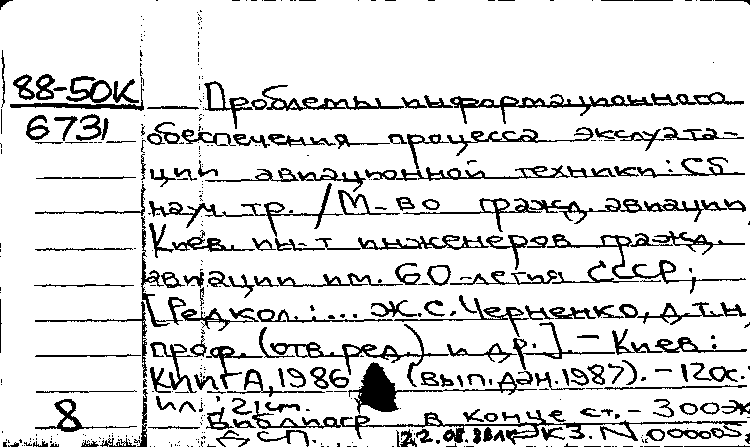 88-50К
6731
Проблемы информационного
обеспечения процесса эксплуата-
ции авиационной техники: Сб
науч. тр. / М-во гражд. авиации,
Киев. ин-т инженеров гражд.
авиации им. 60-летия СССР;
[Редкол.: ... Ж.С. Черненко, д.т.н,
проф. (отв. ред.) и др.]. - Киев:
КНИГА, 1986 (вып. дан. 1987). - 120с.:
ил.; 21 см.
8
Библиогр в конце ст. - 300 эк
ДСП. 22.08.88 ЭКЗ. N 00005